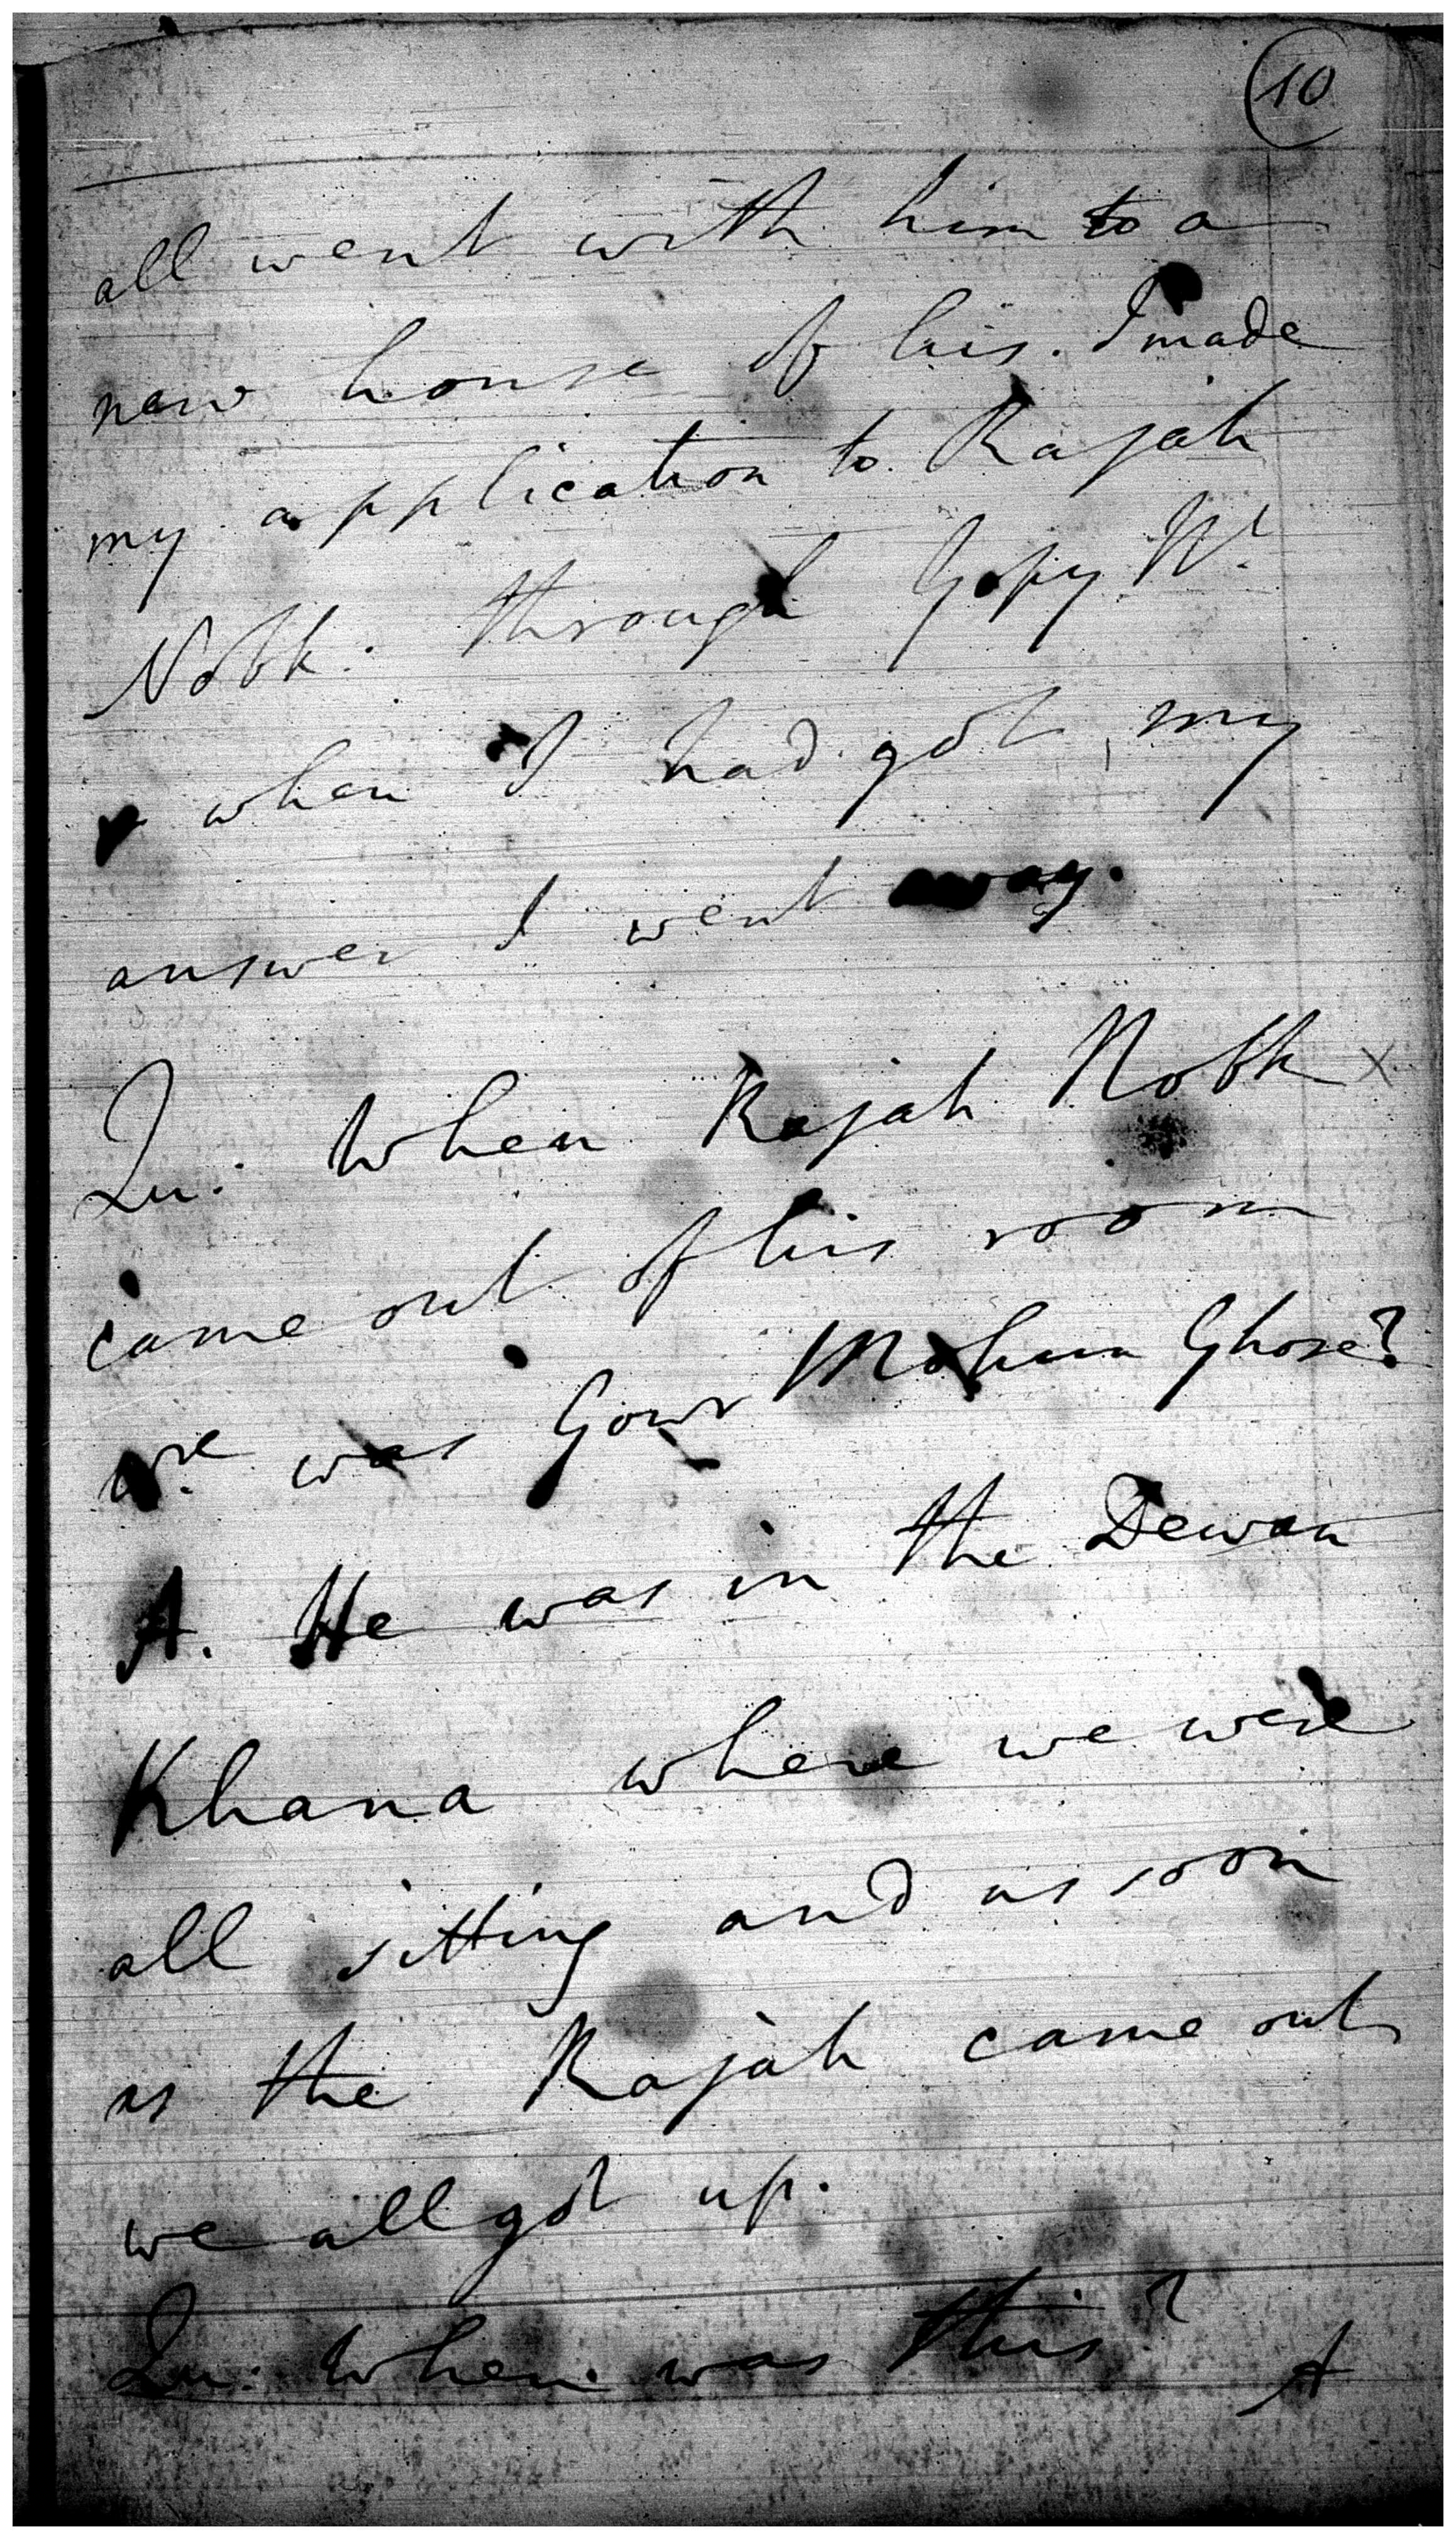 10
all went with him to a
new house of his. I made
my application to Rajah
Nobk: through Gopy
when I had got my
answer I went away.
Qu. When Rajah Nobk x
came out of his room
wre. was Gour Mohun Ghose?
A. He was in the Dewan
Khana where we were
all sitting and as soon
as the Rajah came out
we all got up.
Qu: When was this? A